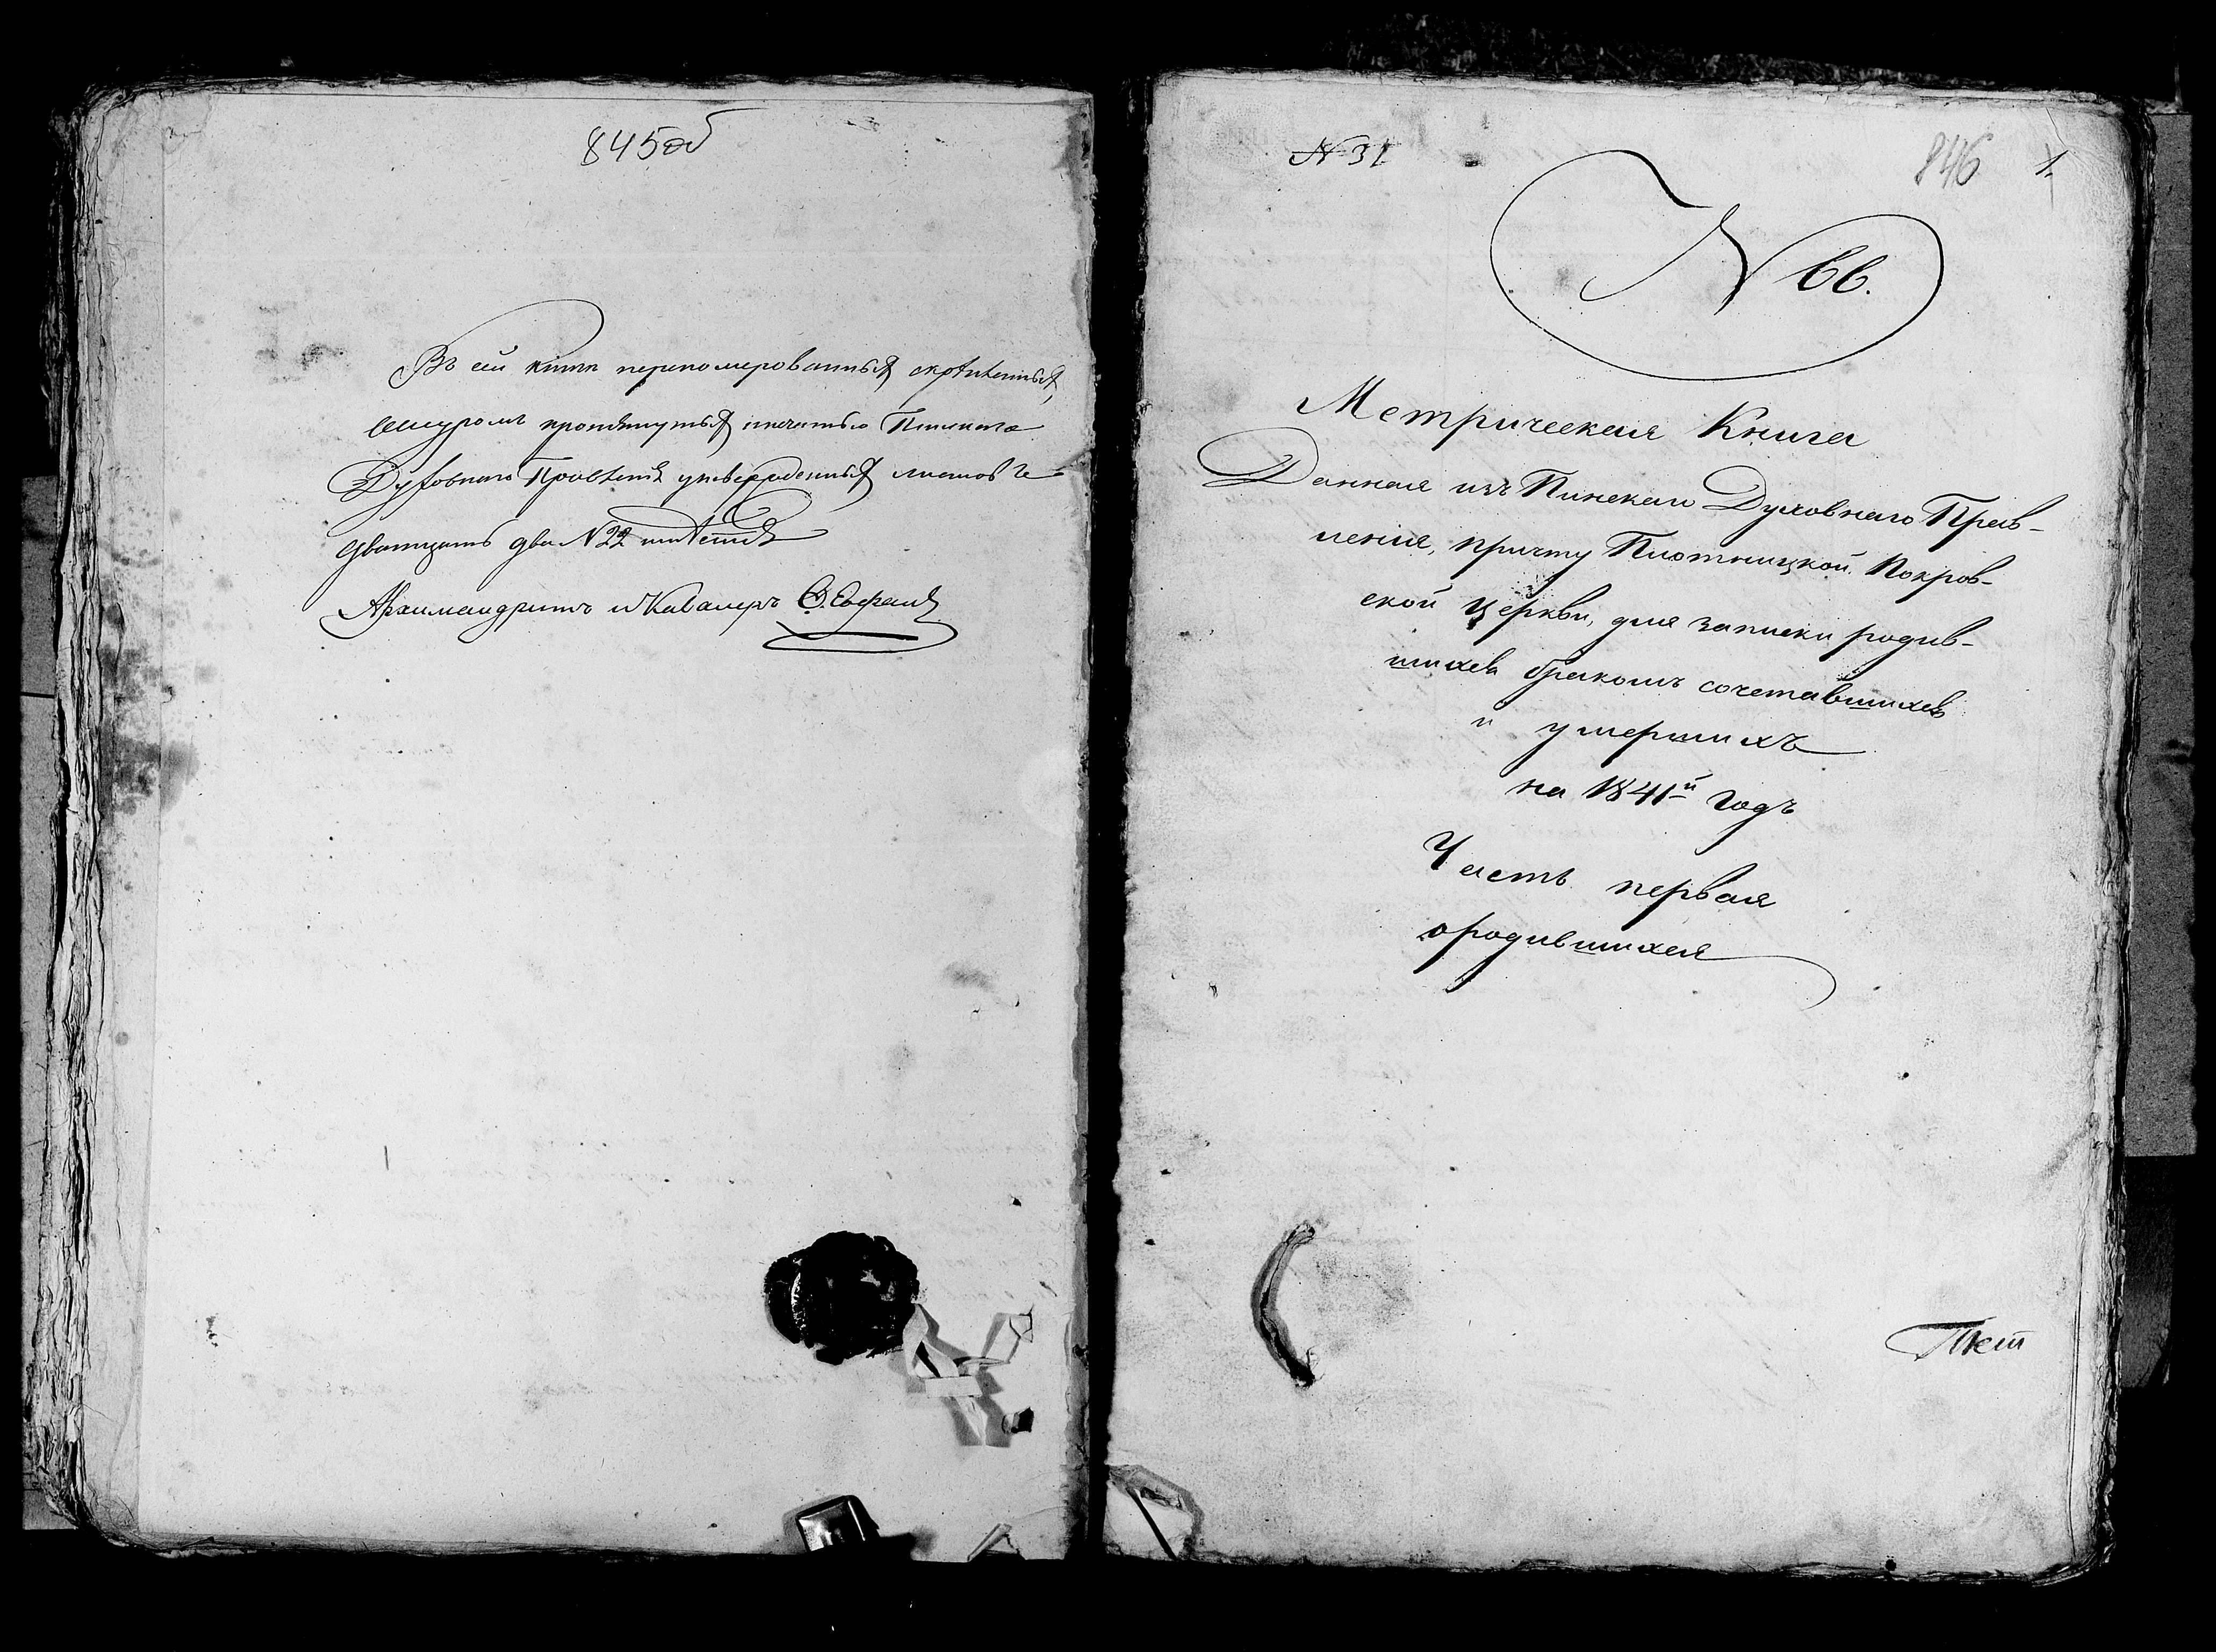 845об
Въ сей книги перономерованныхъ скрепленныхъ,
шнуромъ протянутыхъ печатью Пинскаго
Духовнаго Правленія утвержденныхъ листовъ
двадцать два №22
Архимандритъ и Кавалеръ
№ 31
846 1.
№ 66.
Метрическая Книга
Данная изъ Пинскаго Духовнаго Прав-
ленія, причту Плотницкой Покров-
ской Церкви, для записки родив-
шихся бракомъ сочетавшихся
и умершихъ
на 1841й годъ
Часть первая
о родившихся